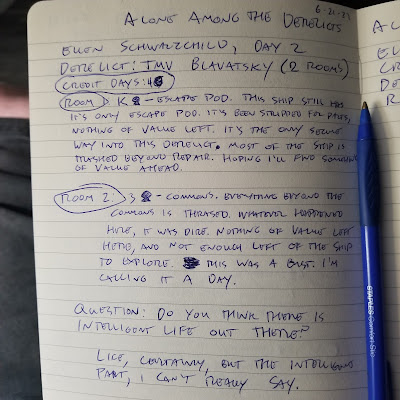 6-21-23
ALONE AMONG THE DERELICTS
ELLEN SCHWARZCHILD, DAY 2
DERELICT: IMV BLAVATSKY (2 ROOMS)
CREDIT DAYS: 
ROOM K - ESCAPE POD. THIS SHIP STILL HAS
IT'S ONLY ESCAPE POD. IT'S BEEN STRIPPED FOR PARTS,
NOTHING OF VALUE LEFT. IT'S THE ONLY SECURE
WAY INTO THIS DERELICT. MOST OF THE SHIP IS
TRASHED BEYOND REPAIR. HOPING I'LL FIND SOMETHING
OF VALUE AHEAD.
ROOM 2: 3 - COMMONS. EVERYTHING BEYOND THE
COMMONS IS THRASED. WHATEVER HAPPENED
HERE, IT WAS DIRE. NOTHING OF VALUE LEFT
HERE, AND NOT ENOUGH LEFT OF THE SHIP
TO EXPLORE. THIS WAS A BUST. I'M
CALLING IT A DAY.
QUESTION: DO YOU THINK THERE IS
INTELLIGENT LIFE OUT THERE?
LIFE, CERTAINLY, BUT THE INTELLIGENT
PART, I CAN'T REALLY SAY.
STAPLES